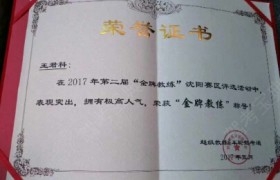 荣誉证书
王君科：
在2017年第二届“金牌教练”沈阳赛区评选活动中，
表现突出，拥有极高人气，荣获“金牌教练”称号！
2017年